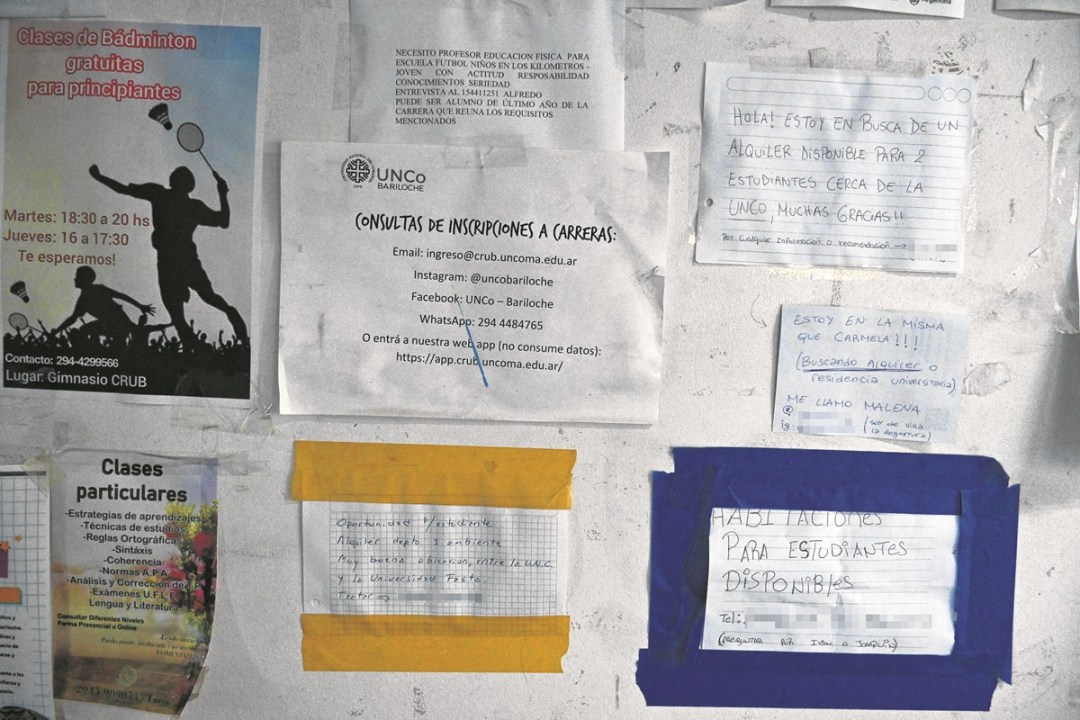 Clases de Bádminton
gratuitas
para principiantes
Martes: 18:30 a 20 hs
Jueves: 16 a 17:30
Te esperamos!
Contacto: 294-4299566
Lugar: Gimnasio CRUB
NECESITO PROFESOR EDUCACION FISICA PARA
ESCUELA FUTBOL NIÑOS EN LOS KILOMETROS -
JOVEN CON ACTITUD RESPOSABILIDAD
CONOCIMIENTOS SERIEDAD
ENTREVISTA AL 154411251 ALFREDO
PUEDE SER ALUMNO DE ÚLTIMO AÑO DE LA
CARRERA QUE REUNA LOS REQUISITOS
MENCIONADOS
UNCo
BARILOCHE
CONSULTAS DE INSCRIPCIONES A CARRERAS:
Email: ingreso@crub.uncoma.edu.ar
Instagram: @uncobariloche
Facebook: UNCo – Bariloche
WhatsApp: 294 4484765
O entrá a nuestra web app (no consume datos):
https://app.crub.uncoma.edu.ar/
HOLA! ESTOY EN BUSCA DE UN
ALQUILER DISPONIBLE PARA 2
ESTUDIANTES CERCA DE LA
UNCO, MUCHAS GRACIAS!!
Por cualquier información o recomendación →
ESTOY EN LA MISMA
QUE CARMELA!!!
(BUSCANDO ALQUILER o
residencia universitaria)
ME LLAMO MALENA
ig:
(soy de villa
la angostura)
Clases
particulares
-Estrategias de aprendizajes
-Técnicas de estudio
-Reglas Ortográficas
-Sintáxis
-Coherencia
-Normas A.P.A
-Análisis y Corrección de T.P
-Exámenes U.F.L.E
Lengua y Literatura
Consultar Diferentes Niveles
Forma Presencial o Online
Oportunidad p/estudiante
Alquiler depto 1 ambiente
Muy buena ubicación, entre la U.N.C.
y la Universidad Fasta.
HABITACIONES
PARA ESTUDIANTES
DISPONIBLES
Tel:
(PREGUNTAR POR IVAN O JOAQUÍN)